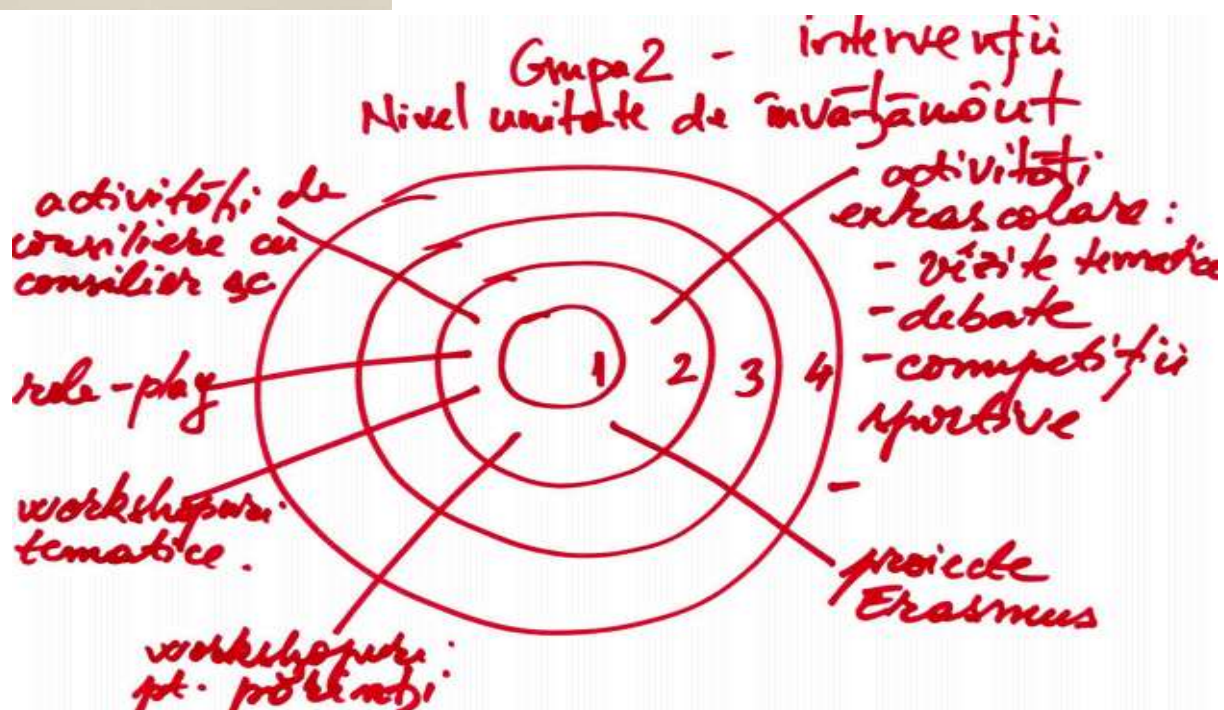 Grupa 2 - intervenții
Nivel unitate de învățământ
activități de
consiliere cu
consilier șc.
role-play
workshopuri
tematice.
workshopuri
pt. părinți
1 2 3 4
activități
extrascolare:
- vizite tematice
- debate
- competiții
sportive
-
proiecte
Erasmus